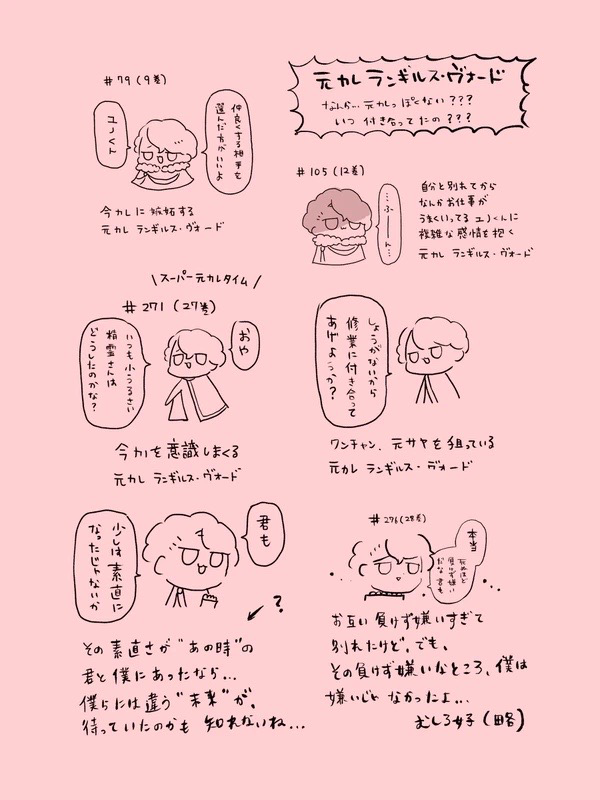 元カレ ランギルス・ヴォード
なんか…元カレっぽくない???
いつ 付き合ってたの???
#79(9巻)
仲良くする相手を
選んだ方がいいよ
ユノくん
今カレに嫉妬する
元カレ ランギルス・ヴォード
#105(12巻)
…ふーーん…
自分と別れてから
なんかお仕事が
うまくいってる ユノくんに
複雑な感情を抱く
元カレ ランギルス・ヴォード
\スーパー元カレタイム/
#271(27巻)
おや
いつも小うるさい
精霊さんは
どうしたのかな?
今カレを意識しまくる
元カレ ランギルス・ヴォード
しょうがないから
修業に付き合って
あげようか?
ワンチャン、元サヤを狙っている
元カレ ランギルス・ヴォード
君も
少しは素直に
なったじゃないか
?
その素直さが"あの時"の
君と僕にあったなら…
僕らには違う"未来"が、
待っていたのかも 知れないね…
#276(28巻)
本当
死ぬほど
負けず嫌い
だな 君も
お互い負けず嫌いすぎて
別れたけど。でも、
その負けず嫌いなところ、僕は
嫌いじゃ なかったよ…
むしろ好(略)